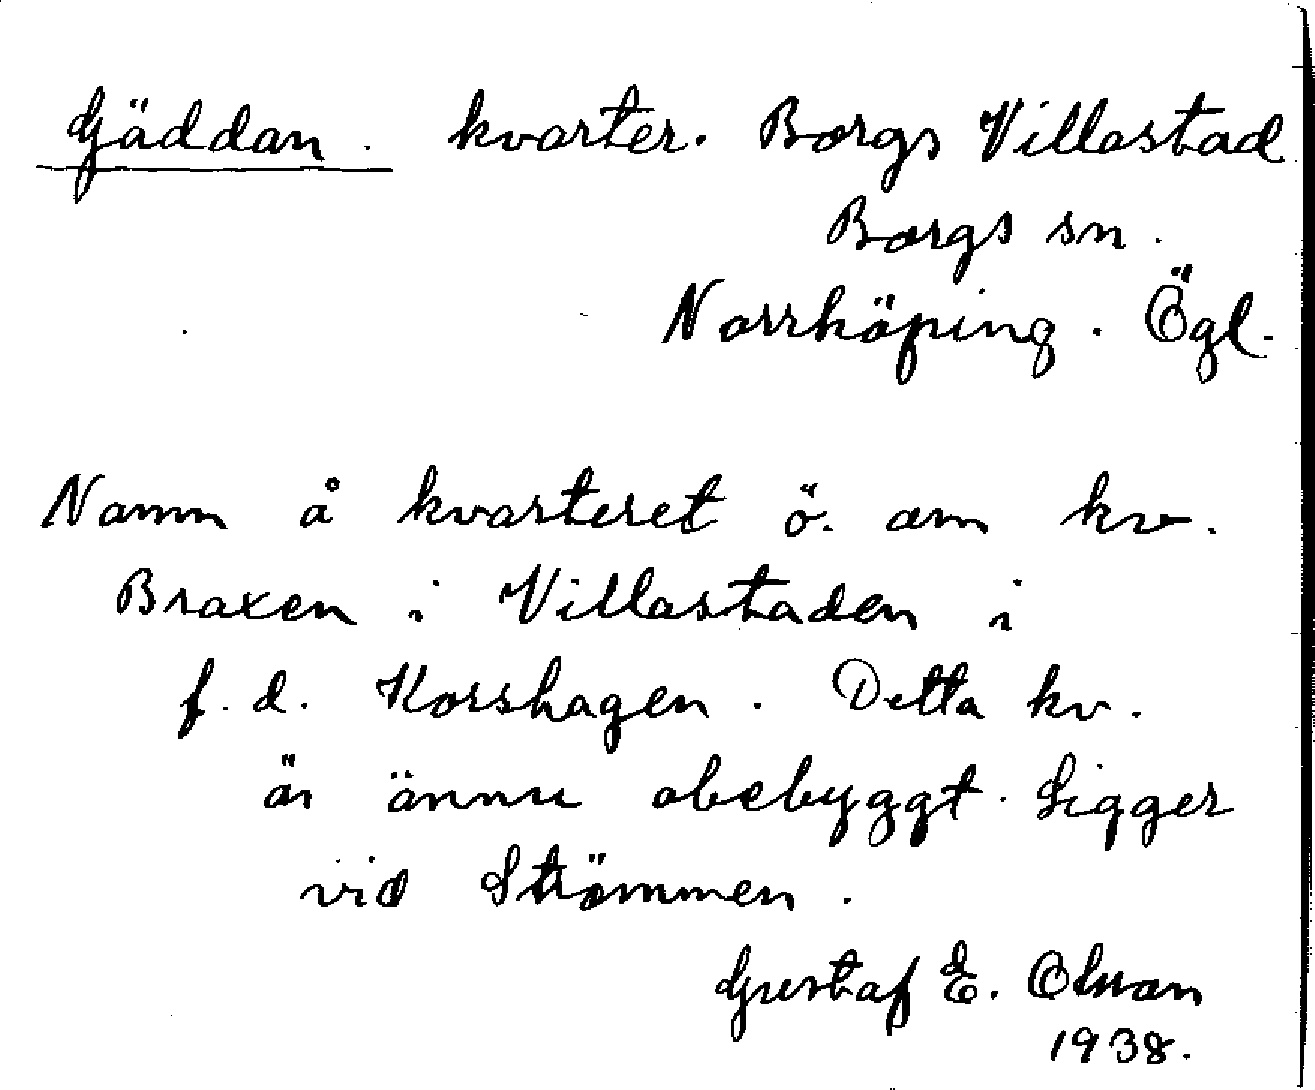 Gäddan. kvarter. Borgs Villastad
Borgs sn.
Norrköping. Ögl.
Namn å kvarteret ö. om kv.
Braxen i Villastaden i
f. d. Korshagen. Detta kv.
är ännu obebyggt. Ligger
vid Strömmen.
Gustaf E. Olsson
1938.